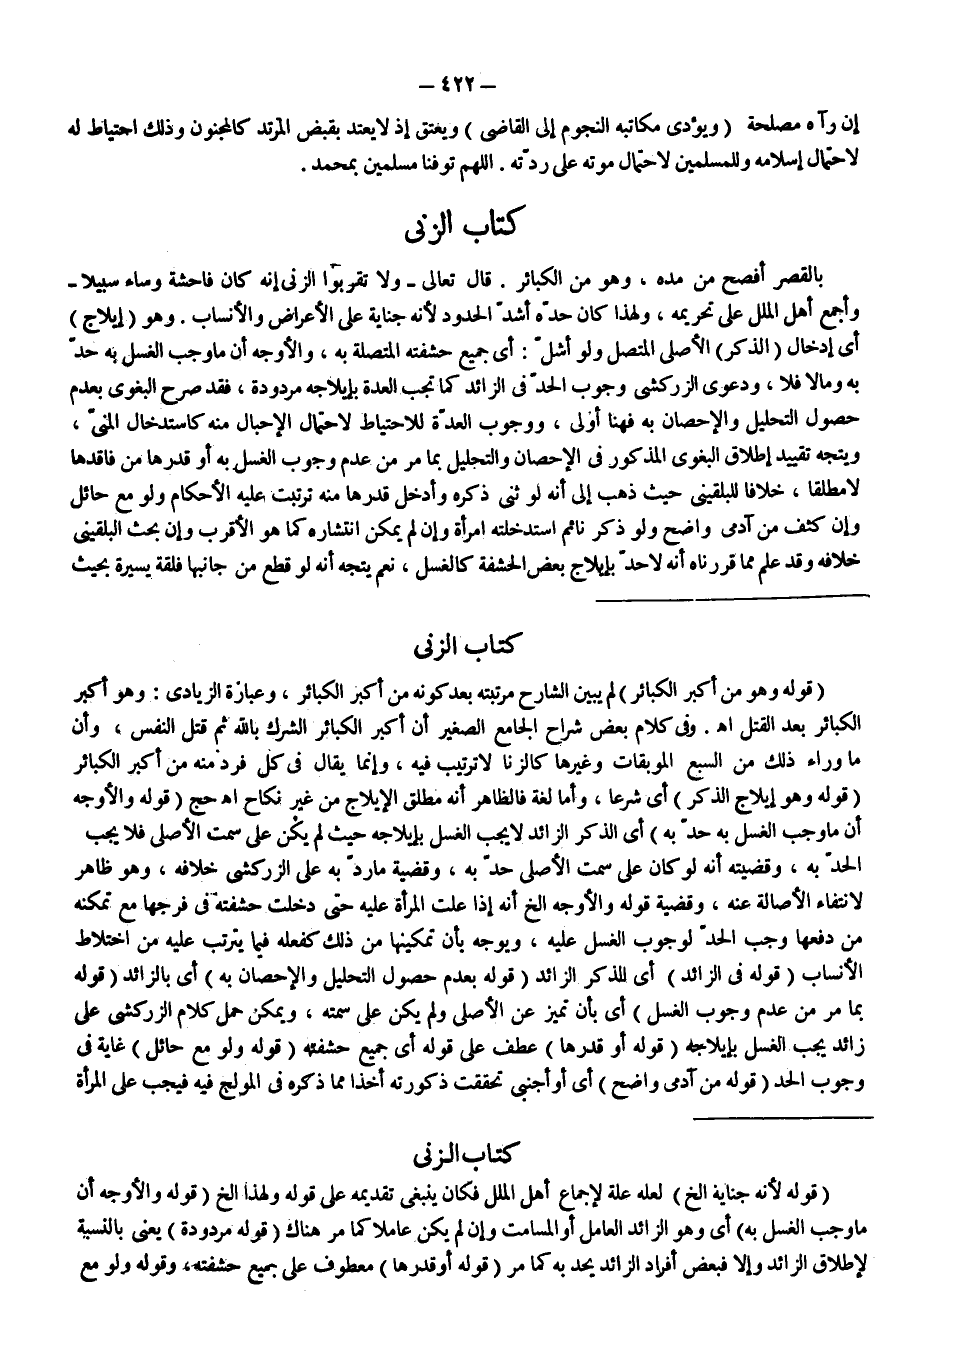 — ٤٢٢ —
إن رآه مصلحة ( ويؤدى مكاتبه النجوم إلى القاضى ) ويعتق إذ لايعتد بقبض المرتد كالمجنون وذلك احتياط له
لاحتمال إسلامه وللمسلمين لاحتمال موته على ردّته . اللهم توفنا مسلمين بمحمد .
كتاب الزنى
بالقصر أفصح من مده ، وهو من الكبائر . قال تعالى ـ ولا تقربوا الزنى إنه كان فاحشة وساء سبيلا ـ
وأجمع أهل الملل على تحريمه ، ولهذا كان حدّه أشدّ الحدود لأنه جناية على الأعراض والأنساب . وهو ( إيلاج )
أى إدخال ( الذكر ) الأصلى المتصل ولو أشلّ : أى جميع حشفته المتصلة به ، والأوجه أن ماوجب الغسل به حدّ
به ومالا فلا ، ودعوى الزركشى وجوب الحدّ فى الزائد كما تجب العدة بإيلاجه مردودة ، فقد صرح البغوى بعدم
حصول التحليل والإحصان به فهنا أولى ، ووجوب العدّة للاحتياط لاحتمال الإحبال منه كاستدخال المنىّ ،
ويتجه تقييد إطلاق البغوى المذكور فى الإحصان والتحليل بما مر من عدم وجوب الغسل به أو قدرها من فاقدها
لامطلقا ، خلافا للبلقينى حيث ذهب إلى أنه لو ثنى ذكره وأدخل قدرها منه ترتبت عليه الأحكام ولو مع حائل
وإن كثف من آدمى واضح ولو ذكر نائم استدخلته امرأة وإن لم يمكن انتشاره كما هو الأقرب وإن بحث البلقينى
خلافه وقد علم مما قررناه أنه لاحدّ بإيلاج بعض الحشفة كالغسل ، نعم يتجه أنه لو قطع من جانبها فلقة يسيرة بحيث
كتاب الزنى
( قوله وهو من أكبر الكبائر ) لم يبين الشارح مرتبته بعد كونه من أكبر الكبائر ، وعبارة الزيادى : وهو أكبر
الكبائر بعد القتل اه . وفى كلام بعض شراح الجامع الصغير أن أكبر الكبائر الشرك بالله ثم قتل النفس ، وأن
ما وراء ذلك من السبع الموبقات وغيرها كالزنا لاترتيب فيه ، وإنما يقال فى كل فرد منه من أكبر الكبائر
( قوله وهو إيلاج الذكر ) أى شرعا ، وأما لغة فالظاهر أنه مطلق الإيلاج من غير نكاح اه حج ( قوله والأوجه
أن ماوجب الغسل به حدّ به ) أى الذكر الزائد لايجب الغسل بإيلاجه حيث لم يكن على سمت الأصلى فلا يجب
الحدّ به ، وقضيته أنه لو كان على سمت الأصلى حدّ به ، وقضية ماردّ به على الزركشى خلافه ، وهو ظاهر
لانتفاء الأصالة عنه ، وقضية قوله والأوجه الخ أنه إذا علت المرأة عليه حتى دخلت حشفته فى فرجها مع تمكنه
من دفعها وجب الحدّ لوجوب الغسل عليه ، ويوجه بأن تمكينها من ذلك كفعله فيما يترتب عليه من اختلاط
الأنساب ( قوله فى الزائد ) أى للذكر الزائد ( قوله بعدم حصول التحليل والإحصان به ) أى بالزائد ( قوله
بما مر من عدم وجوب الغسل ) أى بأن تميز عن الأصلى ولم يكن على سمته ، ويمكن حمل كلام الزركشى على
زائد يجب الغسل بإيلاجه ( قوله أو قدرها ) عطف على قوله أى جميع حشفته ( قوله ولو مع حائل ) غاية فى
وجوب الحد ( قوله من آدمى واضح ) أى أو أجنبى تحققت ذكورته أخذا مما ذكره فى المولج فيه فيجب على المرأة
كتاب الزنى
( قوله لأنه جناية الخ ) لعله علة لإجماع أهل الملل فكان ينبغى تقديمه على قوله ولهذا الخ ( قوله والأوجه أن
ماوجب الغسل به ) أى وهو الزائد العامل أو المسامت وإن لم يكن عاملا كما مر هناك ( قوله مردودة ) يعنى بالنسبة
لإطلاق الزائد وإلا فبعض أفراد الزائد يحد به كما مر ( قوله أوقدرها ) معطوف على جميع حشفته ، وقوله ولو مع